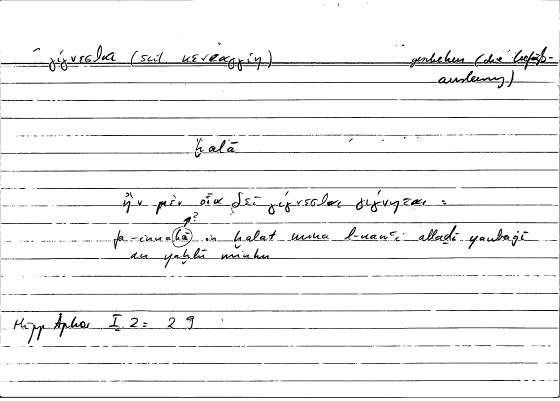 γίγνεσθαι (scil. κενεαγγίη) geschehen (die Gefäß-
ausleerung)
ḫalā
ἢν μὲν οἷα δεῖ γίγνεσθαι γίγνηται =
?
fa-inna(hā) in ḫalat mina l-nauʿi allaḏī yanbaġī
an yaḫlū minhu
Hipp Aphor I 2 = 2 9